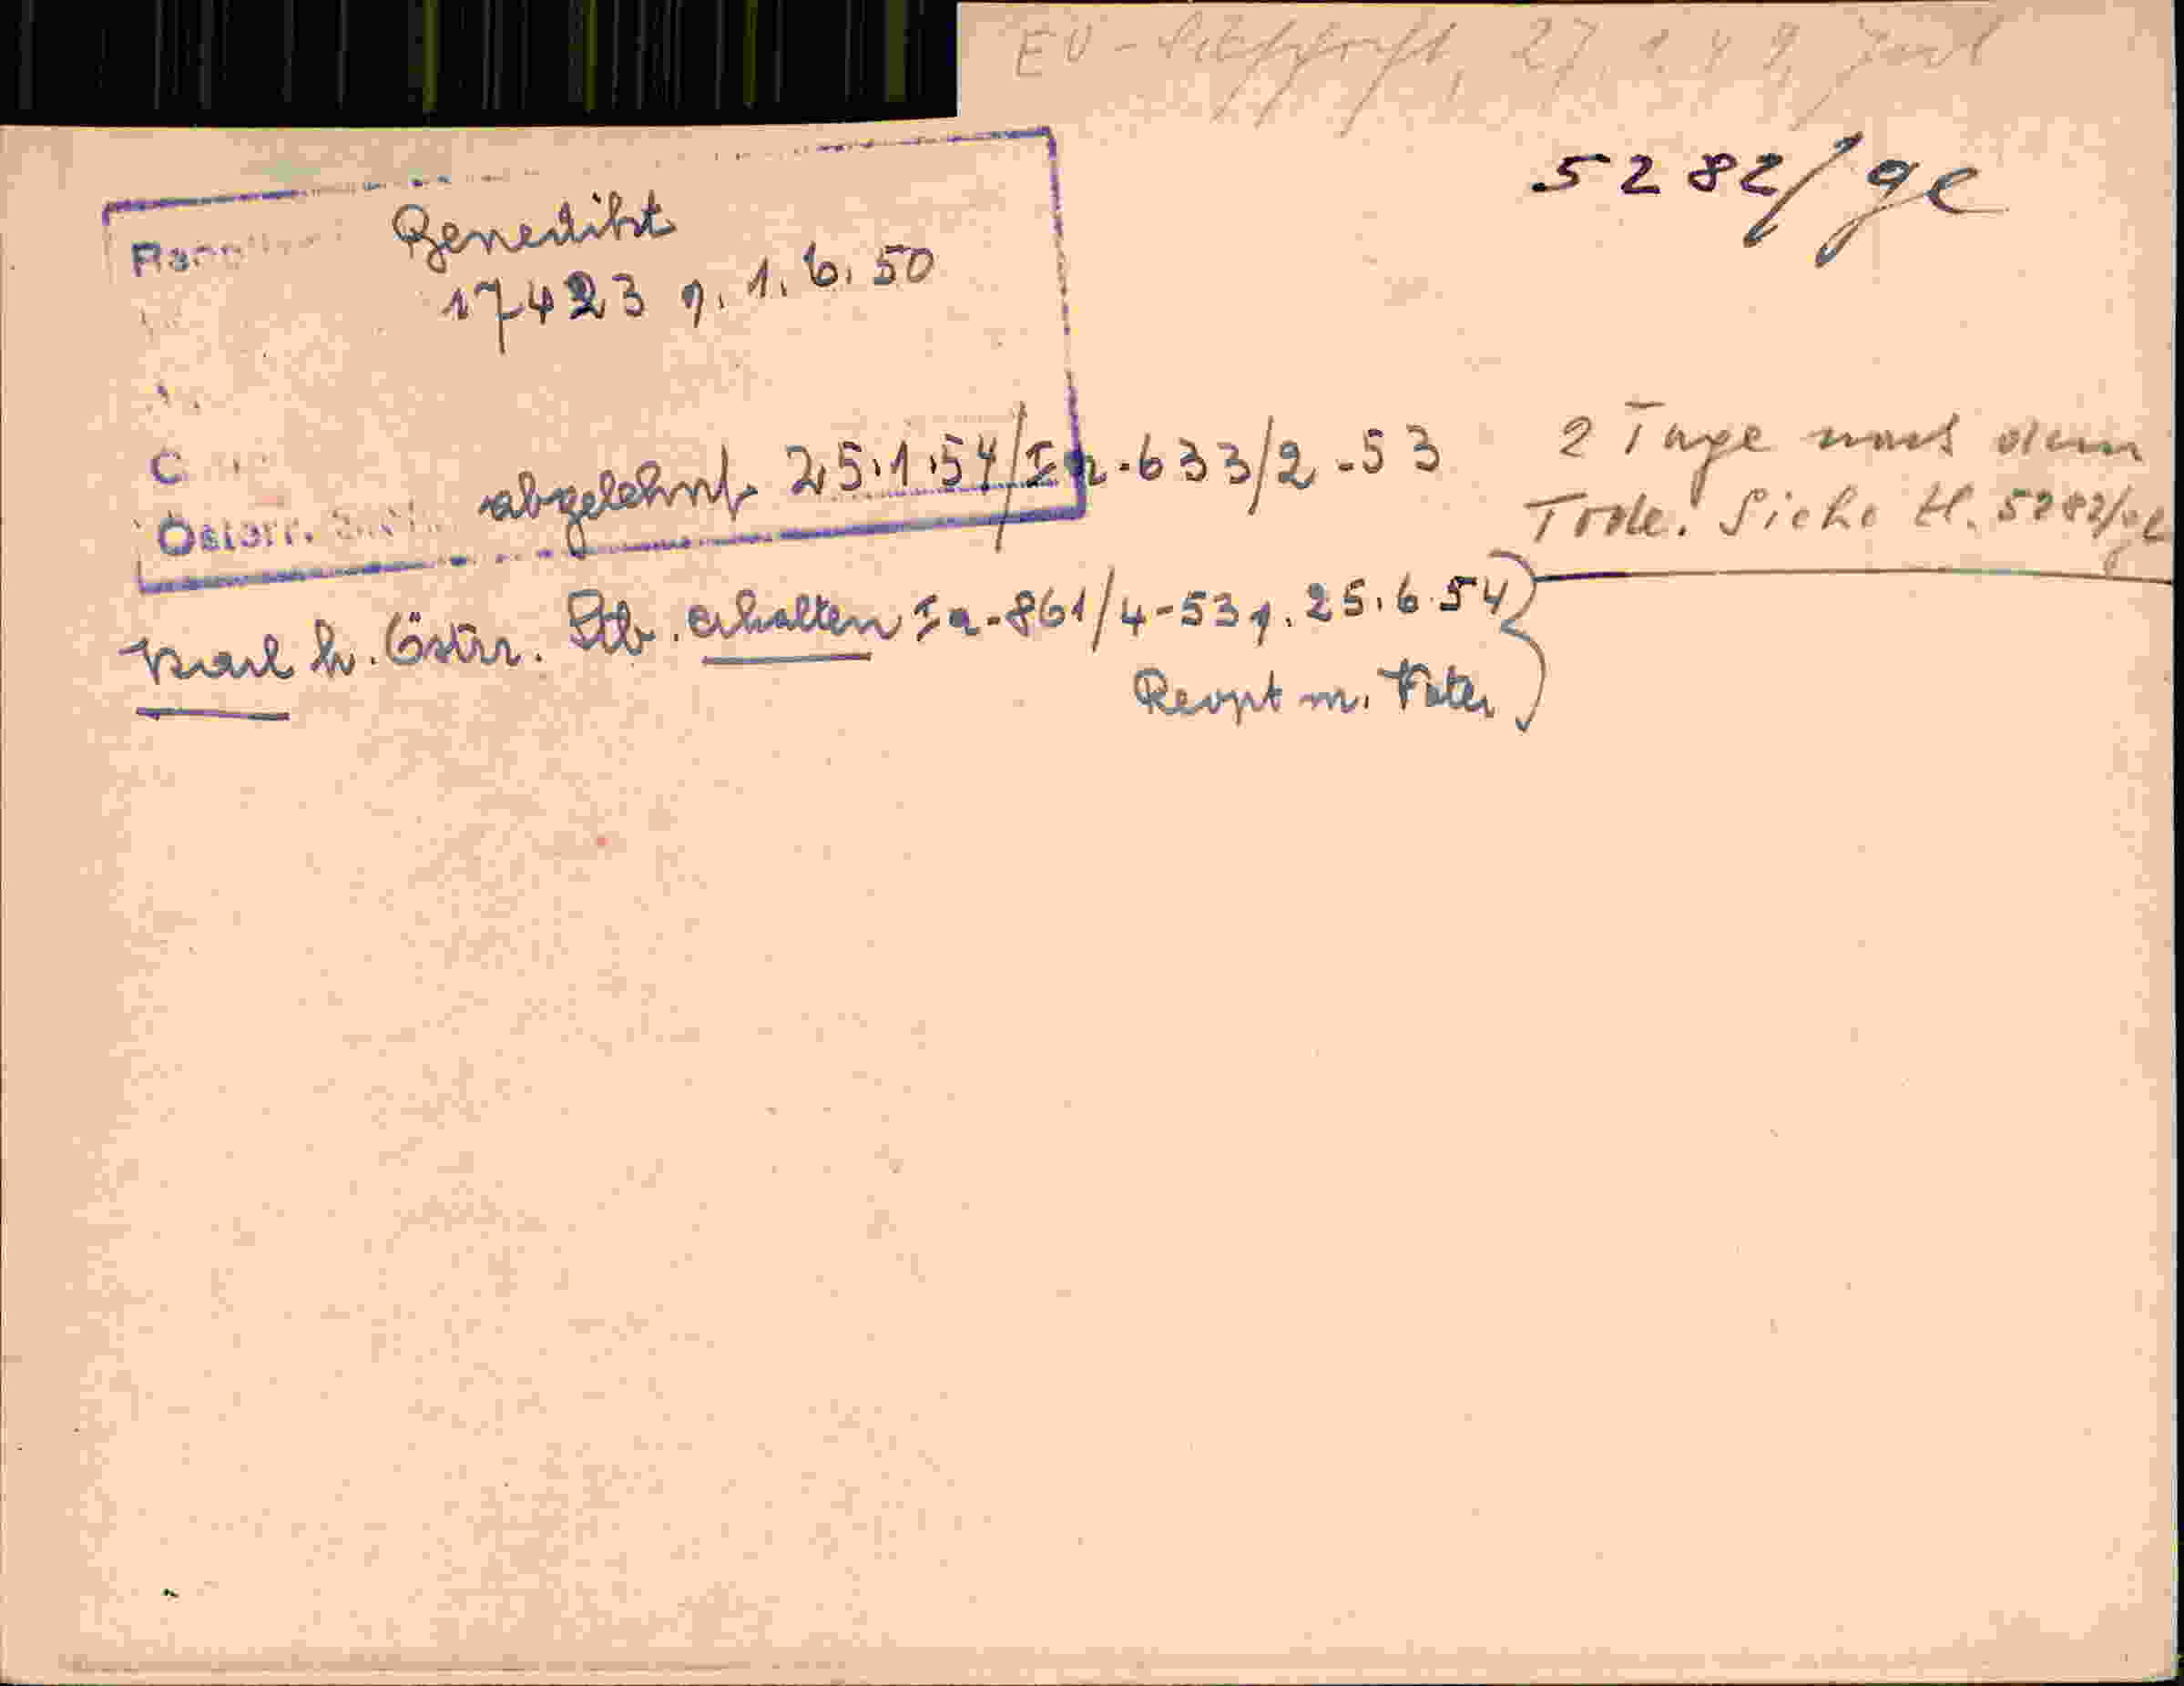 EU - 27.1.49
5282/ge
Benedikt
17423 v. 1.6.50
C
abgelehnt 25.1.54/Ia-633/2-53
2 Tage nach dem
Österr.
Tode! Siehe H. 5282/ge
Karl h. Östrr. Stb. erhalten Ia-861/4-53 v. 25.6.54
Reopt m. Vater